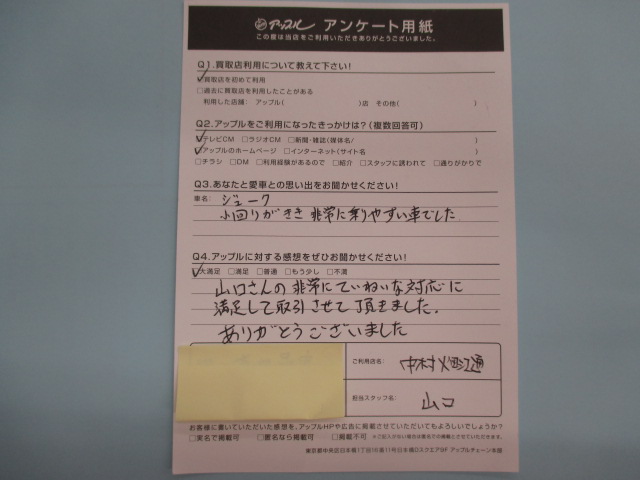 アップル アンケート用紙
この度は当店をご利用いただきありがとうございました。
Q1.買取店利用について教えて下さい!
☑買取店を初めて利用
□過去に買取店を利用したことがある
利用した店舗: アップル( )店 その他( )
Q2.アップルをご利用になったきっかけは?(複数回答可)
☑テレビCM □ラジオCM □新聞・雑誌(媒体名/ )
☑アップルのホームページ □インターネット(サイト名 )
□チラシ □DM □利用経験があるので □紹介 □スタッフに誘われて □通りがかりで
Q3.あなたと愛車との思い出をお聞かせください!
車名: ジューク
小回りがきき 非常に乗りやすい車でした
Q4.アップルに対する感想をぜひお聞かせください!
☑大満足 □満足 □普通 □もう少し □不満
山口さんの非常にていねいな対応に
満足して取引させて頂きました。
ありがとうございました
ご利用店名: 中村
担当スタッフ名: 山口
お客様に書いていただいた感想を、アップルHPや広告に掲載させていただいてもよろしいでしょうか?
□実名で掲載可 □匿名なら掲載可 □掲載不可 ※ご記入がない場合は匿名での掲載とさせていただきます。
東京都中央区日本橋1丁目16番11号日本橋DスクエアGF アップルチェーン本部